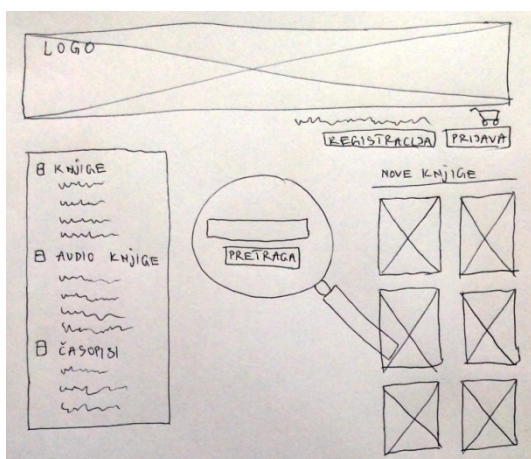 LOGO
REGISTRACIJA PRIJAVA
KNJIGE
AUDIO KNJIGE
ČASOPISI
PRETRAGA
NOVE KNJIGE